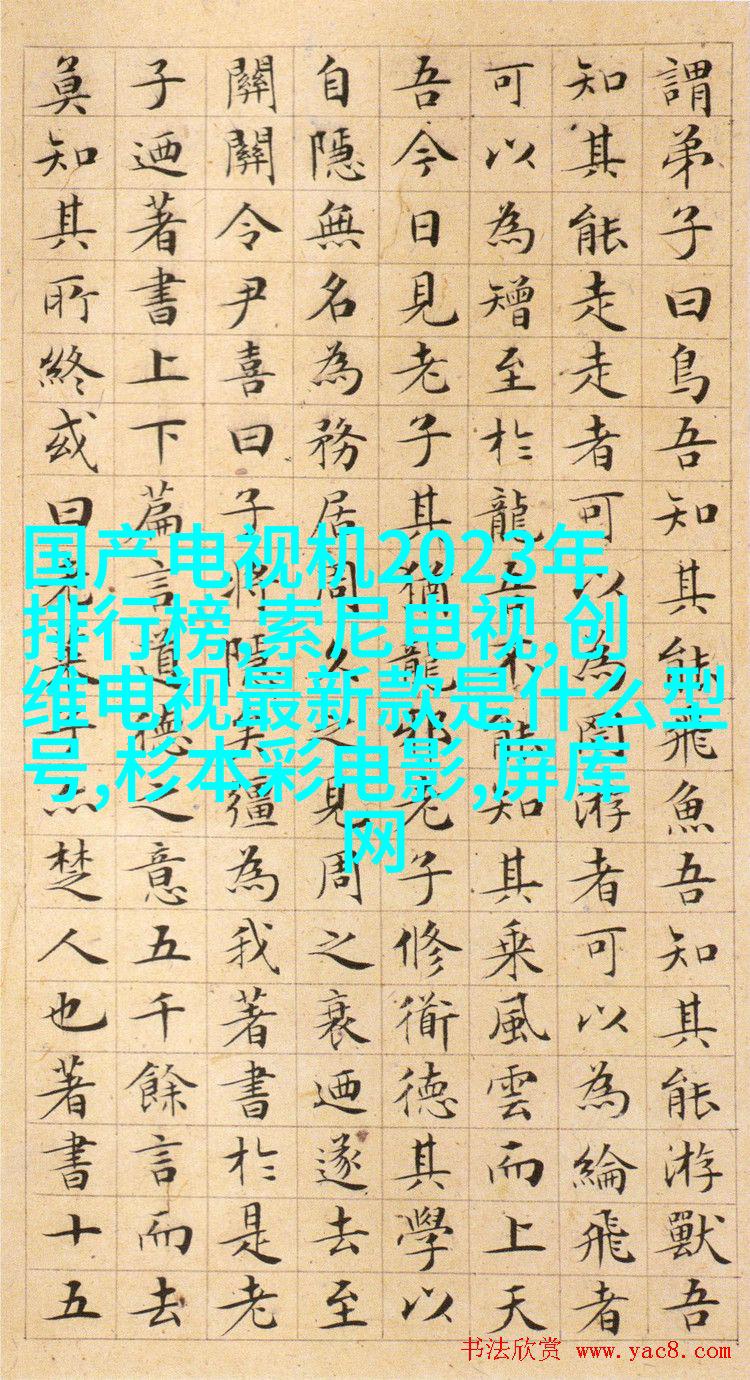 謂弟子曰鳥吾知其能飛魚吾知其能游獸吾
知其能走走者可以為罔游者可以為綸飛者
可以為矰至於龍吾不能知其乘風雲而上天
吾今日見老子其猶龍邪老子修衜德其學以
自隱無名為務居周久之見周之衰迺遂去至
關關令尹喜曰子將隱矣彊為我著書於是老
子迺著書上下篇言道德之意五千餘言而去
莫知其所終或曰老萊子亦楚人也著書十五
国产电视机2023年
排行榜,索尼电视,创
维电视最新款是什么型
号,杉本彩电影,屏库
网
书法欣赏 www.yac8.com